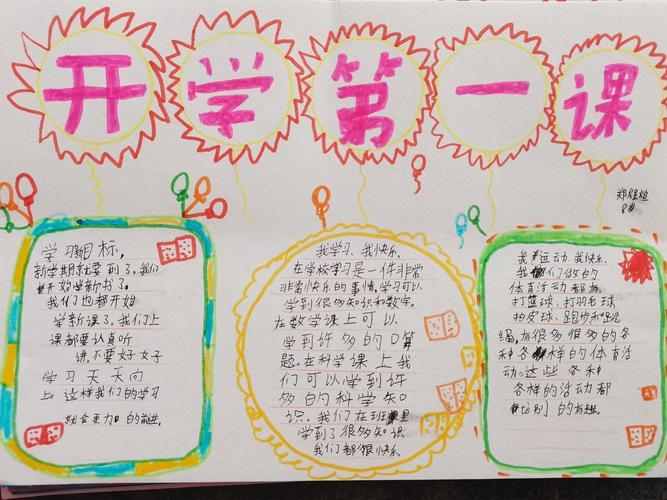 开学第一课
郑煜煊
8岁
学习新目标,
新学期就要到了,我们
开始学新书了。
我们也都开始
学新课了,我们上
课都要认真听
讲,不要好女子
学习天天向
上这样我们的学习
就会更力的前进,
我学习、我快乐,
在学校学习是一件非常
非常快乐的事情,学习可以
学到很多知识和数字,
在数学课上可以
学到许多的口算
题。在科学课上我
们可以学到许
多的科学知
识,我们在班里
学到了很多知识
我们都很快乐。
我运动,我快乐,
我们们做的
体育活动都有
打篮球、打羽毛球
拍皮球、跑步和跳
绳,有很多很多的各
种各样的体育活
动。这些各种
各样的活动都
的有趣。